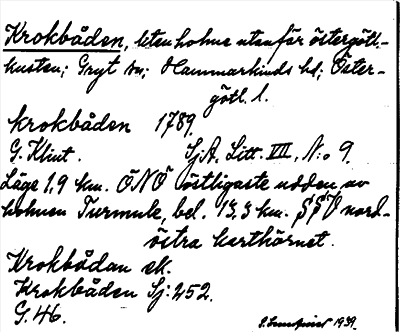 Krokbåden, liten holme utanför östergötl.-
kusten; Gryt sn; Hammarkinds hd; Öster-
götl. l.
Krokbåden 1789.
G. Klint. Sj.A. Litt. VII, N:o 9.
Läge 1,9 km. ÖNÖ östligaste udden av
holmen Turmule, bel. 13,3 km. SSV nord-
östra karthörnet.
Krokbådan ek.
Krokbåden Sj: 252.
G. 46.
1939.